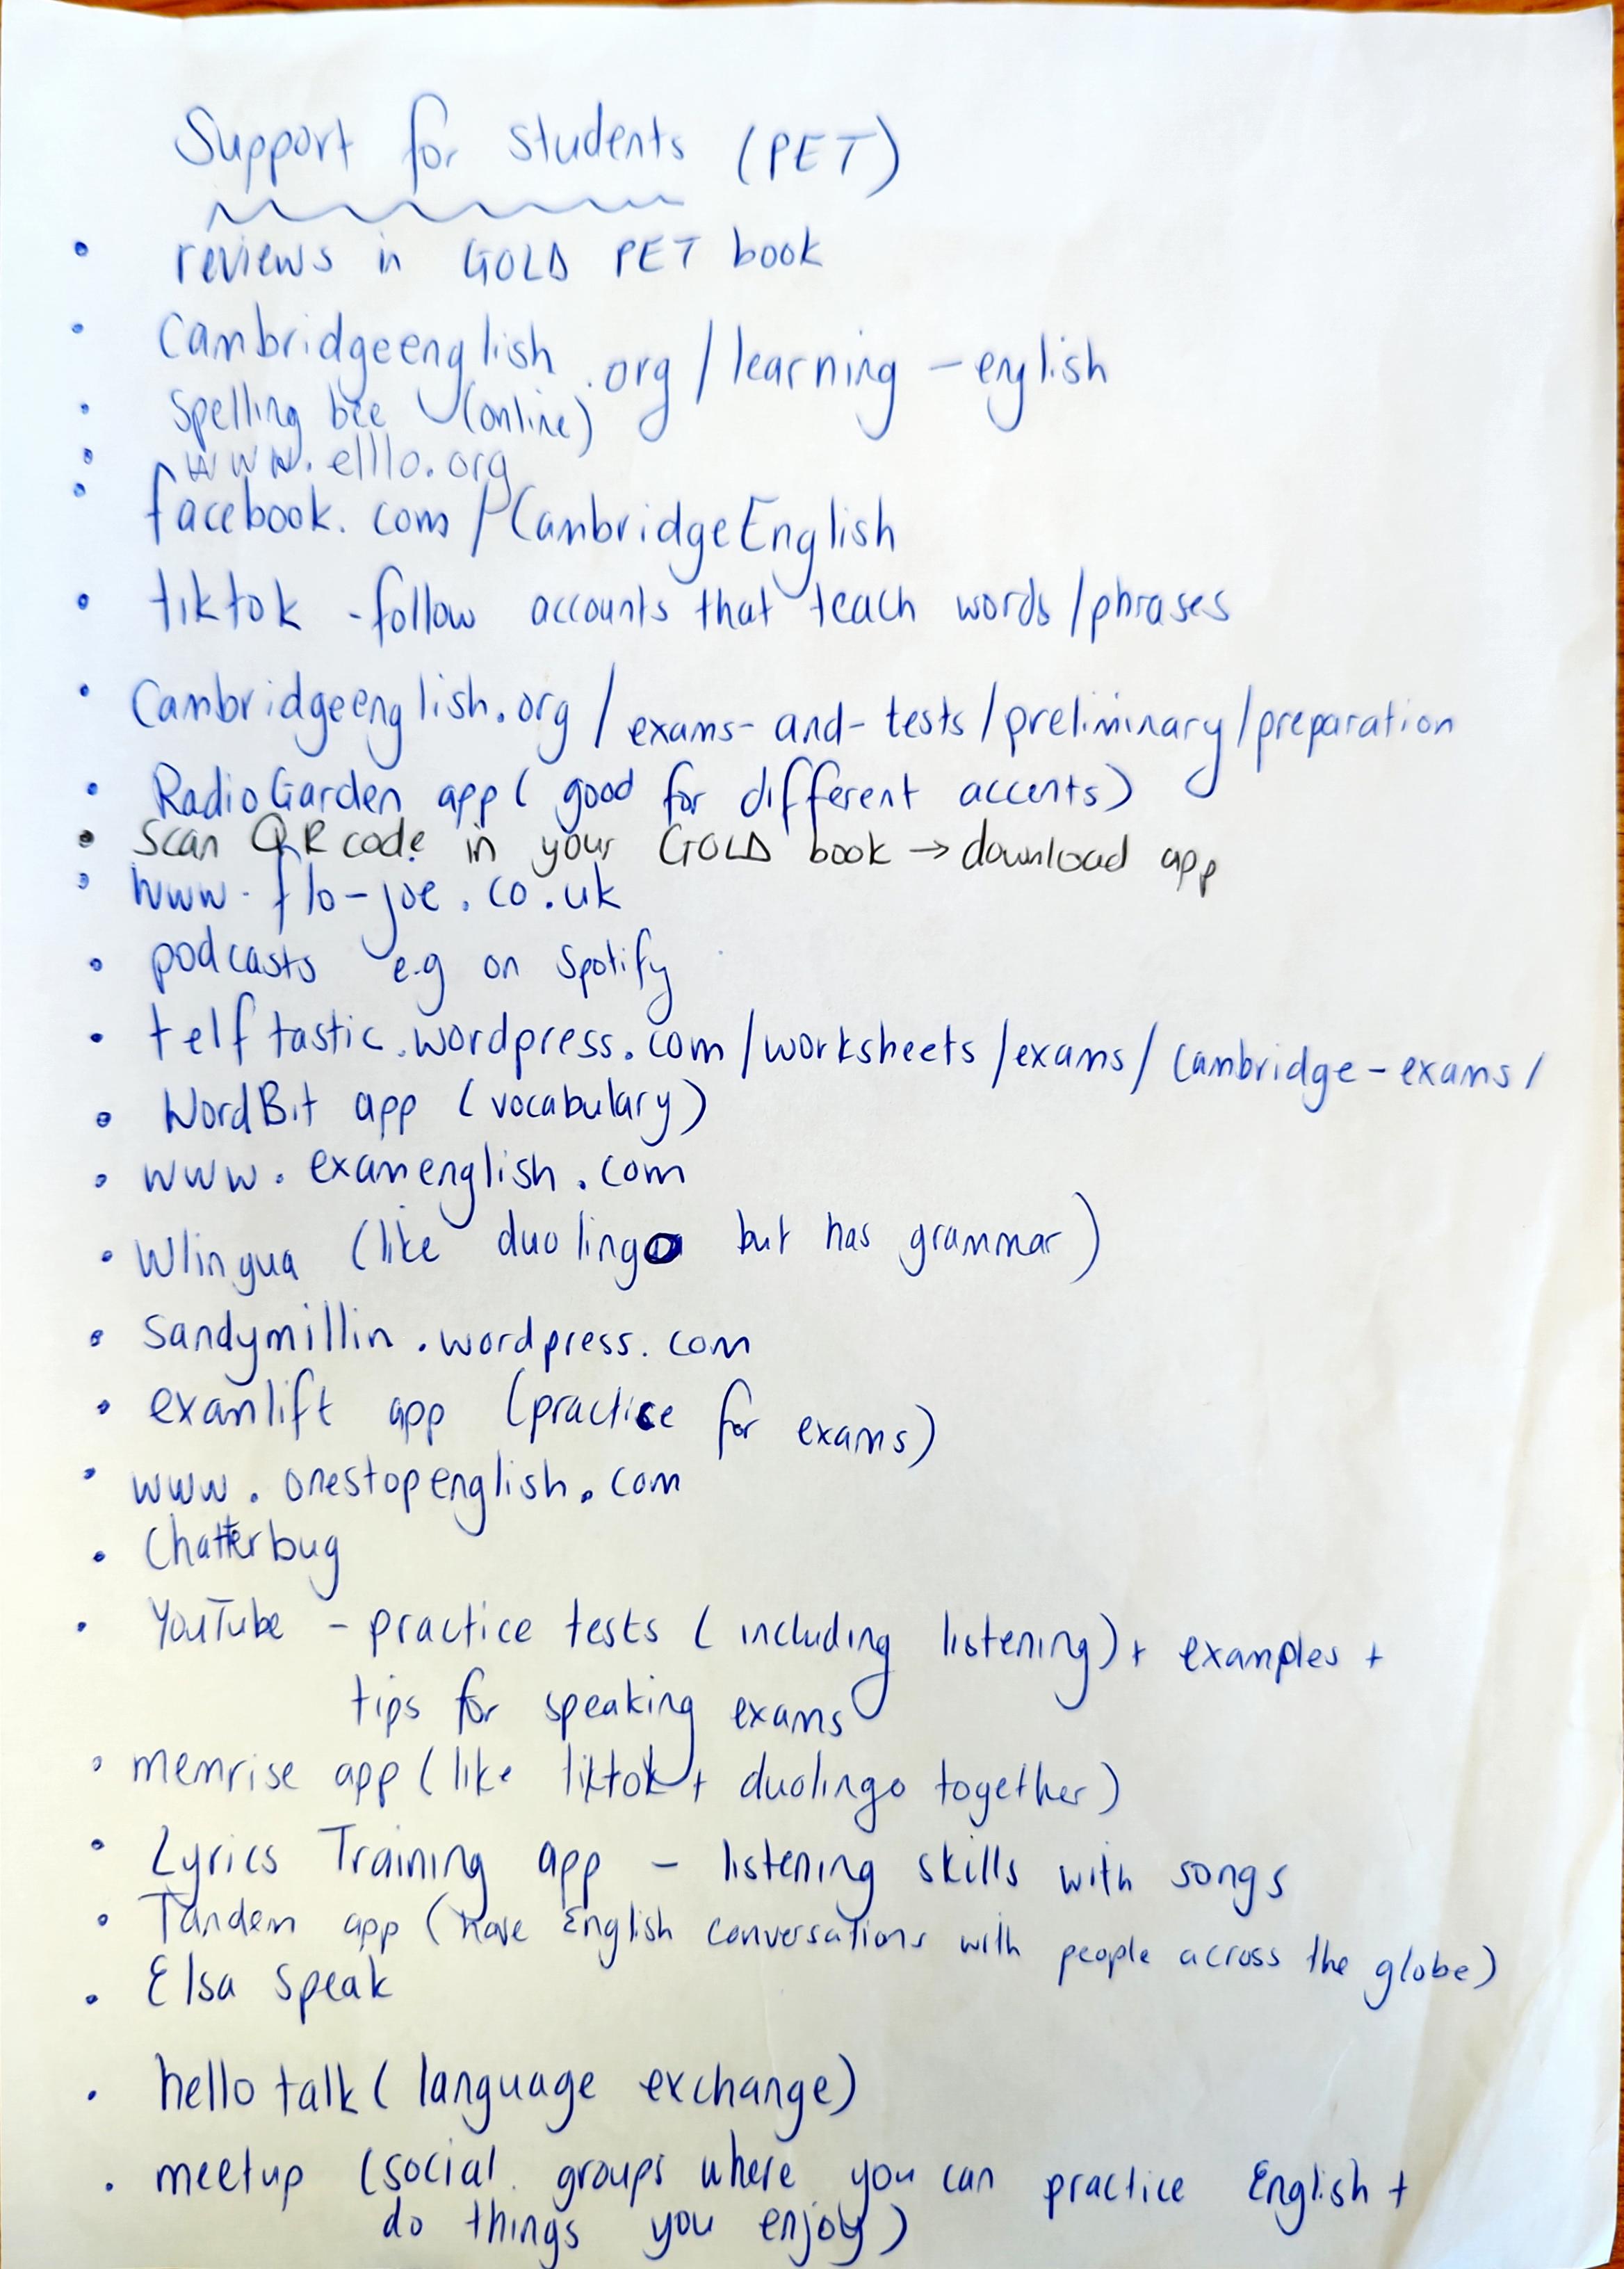 Support for students (PET)
• reviews in GOLD PET book
• Cambridgeenglish.org/learning-english
• Spelling bee (online)
• www.elllo.org
• facebook.com/CambridgeEnglish
• tiktok - follow accounts that teach words/phrases
• Cambridgeenglish.org/exams-and-tests/preliminary/preparation
• RadioGarden app (good for different accents)
• Scan QR code in your GOLD book → download app
• www.flo-joe.co.uk
• podcasts e.g on Spotify
• telftastic.wordpress.com/worksheets/exams/cambridge-exams/
• WordBit app (vocabulary)
• www.examenglish.com
• Wlingua (like duolingo but has grammar)
• Sandymillin.wordpress.com
• examlift app (practice for exams)
• www.onestopenglish.com
• Chatterbug
• YouTube - practice tests (including listening) + examples +
tips for speaking exams
• memrise app (like tiktok + duolingo together)
• Lyrics Training app - listening skills with songs
• Tandem app (have English conversations with people across the globe)
• Elsa Speak
• hello talk (language exchange)
• meetup (social groups where you can practice English +
do things you enjoy)